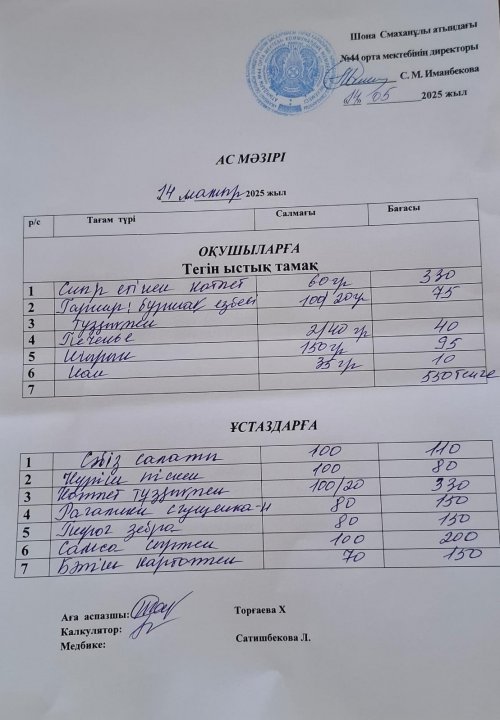 Шона Смаханұлы атындағы
№44 орта мектебінің директоры
С. М. Иманбекова
14 05 2025 жыл
АС МӘЗІРІ
14 мамыр 2025 жыл
р/с Тағам түрі Салмағы Бағасы
ОҚУШЫЛАРҒА
Тегін ыстық тамақ
1 Сиыр етінен котлет 60 гр 330
2 Гарнир: бұршақ езбесі 100/20гр 75
3 тұздықпен
4 Печенье 2/40 гр 40
5 Шырын 150 гр 95
6 Нан 35 гр 10
7 550 теңге
ҰСТАЗДАРҒА
1 Сәбіз салаты 100 110
2 Күріш піскен 100 80
3 Котлет тұздықпен 100/20 330
4 Рагалики сгущенка-н 80 150
5 Пирог зебра 80 150
6 Самса етпен 100 200
7 Бәтіш картоппен 70 150
Аға аспазшы: Торғаева Х
Калкулятор:
Медбике: Сатишбекова Л.